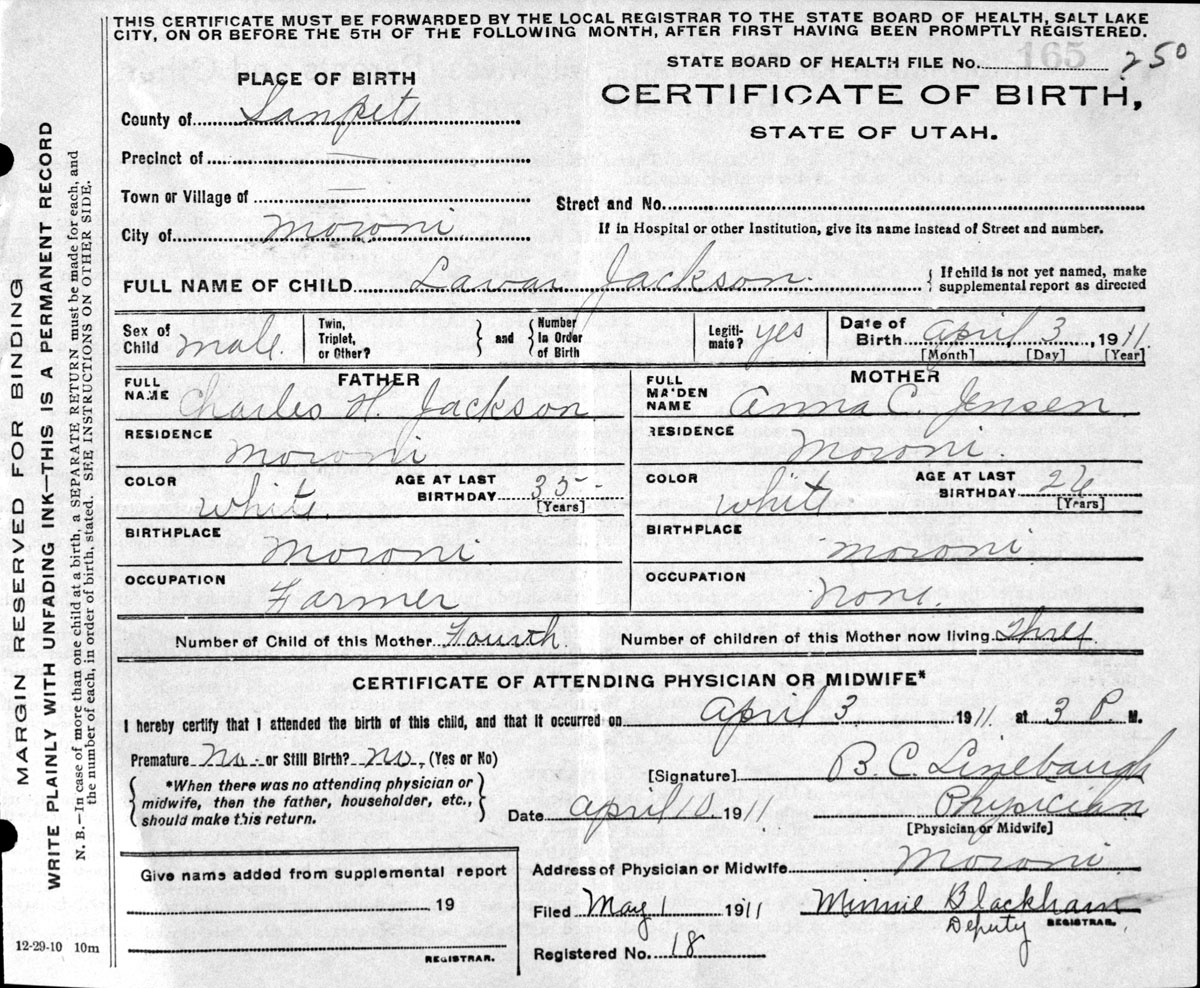 THIS CERTIFICATE MUST BE FORWARDED BY THE LOCAL REGISTRAR TO THE STATE BOARD OF HEALTH, SALT LAKE
CITY, ON OR BEFORE THE 5TH OF THE FOLLOWING MONTH, AFTER FIRST HAVING BEEN PROMPTLY REGISTERED.
165
STATE BOARD OF HEALTH FILE No. 250
PLACE OF BIRTH
CERTIFICATE OF BIRTH,
STATE OF UTAH.
County of Sanpete
Precinct of
Town or Village of
Street and No.
City of Moroni
If in Hospital or other Institution, give its name instead of Street and number.
FULL NAME OF CHILD Jackson. { If child is not yet named, make
supplemental report as directed
Sex of Child male. Twin, Triplet, or Other? } and { Number in Order of Birth Legiti-mate? yes Date of Birth April 3, 1911.
[Month] [Day] [Year]
FATHER MOTHER
FULL NAME Charles H. Jackson FULL MAIDEN NAME Anna C. Jensen.
RESIDENCE Moroni RESIDENCE Moroni.
COLOR White. AGE AT LAST BIRTHDAY 35 [Years] COLOR White AGE AT LAST BIRTHDAY 26 [Years]
BIRTHPLACE Moroni BIRTHPLACE Moroni
OCCUPATION Farmer OCCUPATION None.
Number of Child of this Mother Fourth Number of children of this Mother now living Three.
CERTIFICATE OF ATTENDING PHYSICIAN OR MIDWIFE*
I hereby certify that I attended the birth of this child, and that it occurred on April 3 1911 at 3 P. M.
Premature No. or Still Birth? No. (Yes or No)
[Signature] B. C. Linebaugh
*When there was no attending physician or
midwife, then the father, householder, etc.,
should make this return.
Date April 10. 1911 Physician
[Physician or Midwife]
Address of Physician or Midwife Moroni
Give name added from supplemental report
19
REGISTRAR.
Filed May 1 1911 Minnie Blackham
Deputy REGISTRAR.
Registered No. 18
12-29-10 10m
MARGIN RESERVED FOR BINDING
WRITE PLAINLY WITH UNFADING INK—THIS IS A PERMANENT RECORD
N. B.—In case of more than one child at a birth, a SEPARATE RETURN must be made for each, and
the number of each, in order of birth, stated. SEE INSTRUCTIONS ON OTHER SIDE.